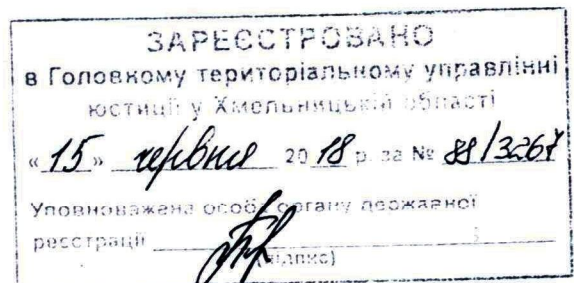 ЗАРЕЄСТРОВАНО
в Головному територіальному управлінні
юстиції у Хмельницькій області
«15» червня 2018 р. за № 88/3267
Уповноважена особа органу державної
реєстрації
(підпис)